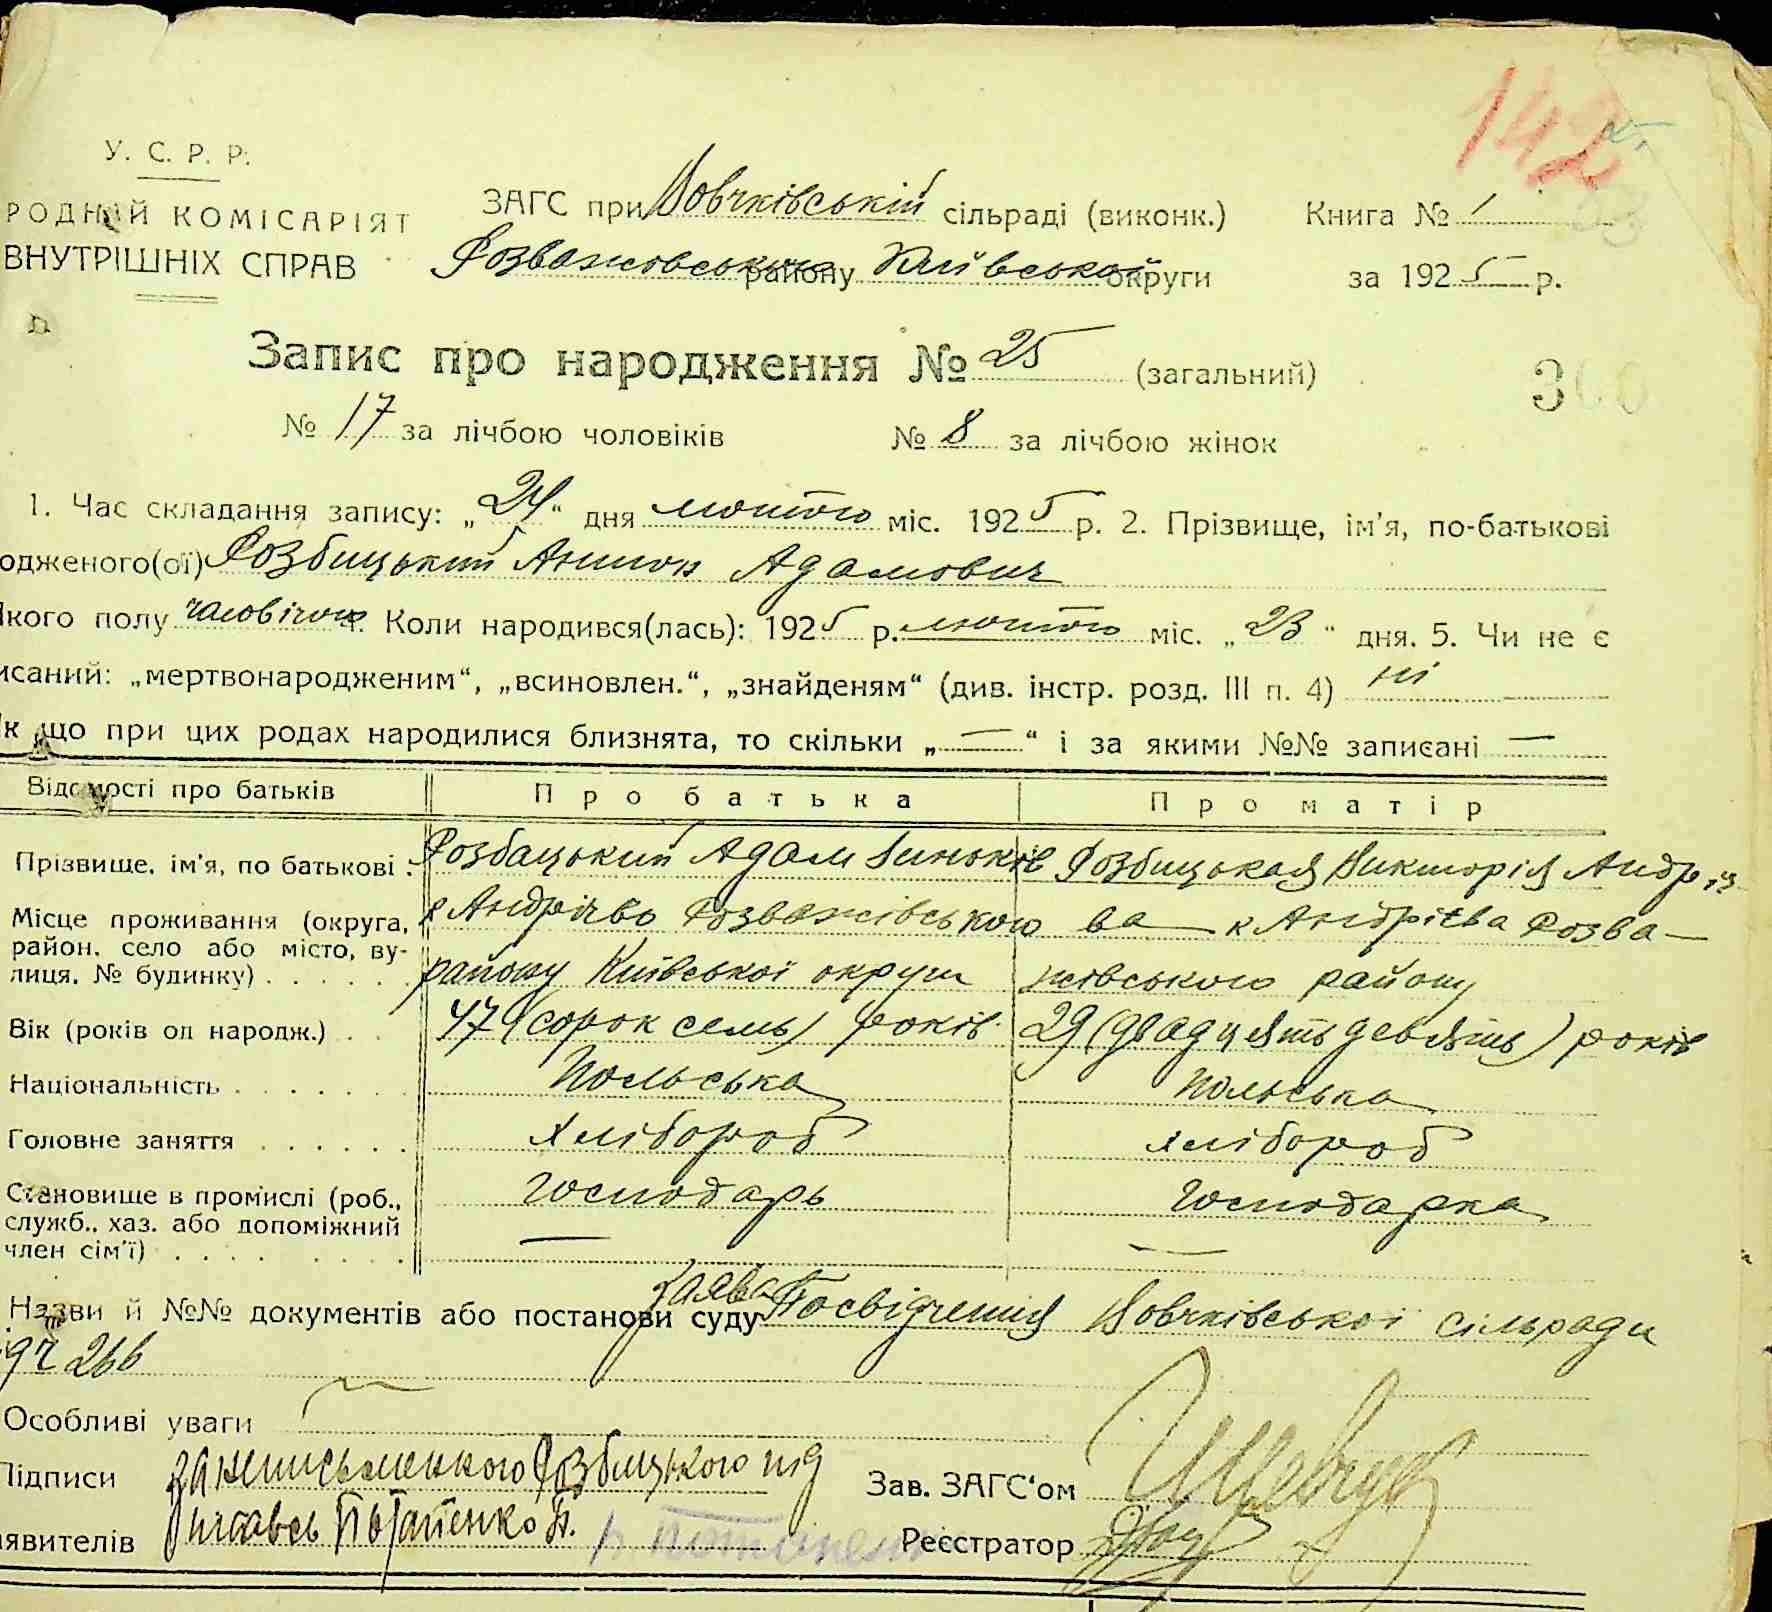 142
У. С. Р. Р.
РОДНИЙ КОМІСАРІЯТ
ВНУТРІШНІХ СПРАВ
ЗАГС при Вовчківській сільраді (виконк.) Книга № 1
Розважовського району Київської округи за 1925 р.
Запис про народження № 25 (загальний)
300
№ 17 за лічбою чоловіків № 8 за лічбою жінок
1. Час складання запису: „24“ дня лютого міс. 1925 р. 2. Прізвище, ім'я, по-батькові
одженого(ої) Розбицький Антон Адамович
якого полу чоловічого 4. Коли народився(лась): 1925 р. лютого міс. „23“ дня. 5. Чи не є
исаний: „мертвонародженим“, „всиновлен.“, „знайденям“ (див. інстр. розд. III п. 4) ні
к що при цих родах народилися близнята, то скільки „—“ і за якими №№ записані —
Відомості про батьків Про батька Про матір
Прізвище, ім'я, по батькові . Розбацький Адам Виньків Розбицькая Викторія Андріє
Місце проживання (округа, район, село або місто, вулиця, № будинку) . . . . . х Андріево Розважівського району Київської округи ва — х Андрієва Розважівського району
Вік (років од народж.) . . 47 (сорок семь) років 29 (двадцять девять) років
Національність . . . . . . . Польська Польська
Головне заняття . . . . . . Хлібороб хлібороб
Становище в промислі (роб., служб., хаз. або допоміжний член сім'ї) . . . . . . . Господарь — Господарка —
Назви й №№ документів або постанови суду заява Посвідчення Вовчківської сільради
266
Особливі уваги —
Підписи за неписьменного Розбицького під
аявителів писавсь Потапенко П.
Зав. ЗАГС'ом
Реєстратор